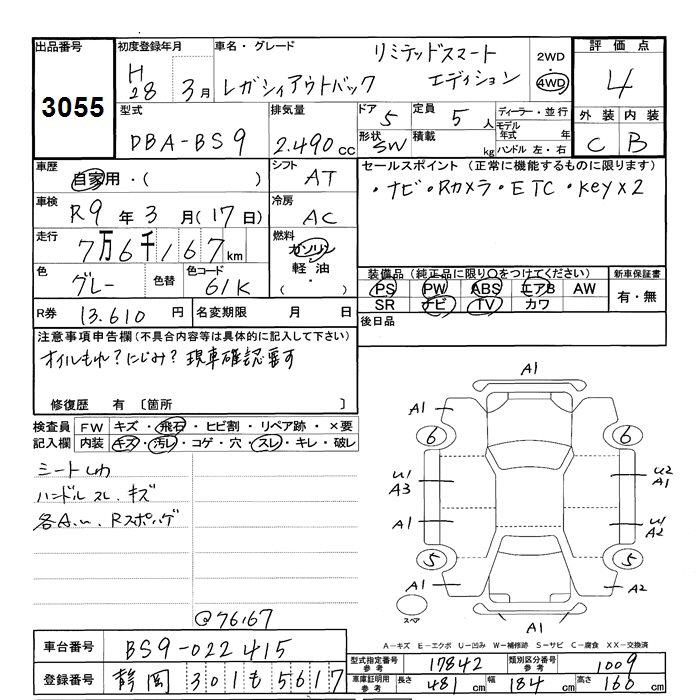 出品番号 初度登録年月 車名・グレード リミテッドスマート 2WD 評価点
3055 H28 3月 レガシィアウトバック エディション 4WD 4
型式 排気量 ドア 5 定員 5人 ディーラー・並行 外装 内装
DBA-BS9 2.490cc 形状 SW 積載 kg モデル年式 年 C B
ハンドル 左・右
車歴 シフト セールスポイント(正常に機能するものに限ります)
自家用・( ) AT ・ナビ・Rカメラ・ETC・Key×2
車検 R9年3月(17日) 冷房 AC
走行 7万6千167km 燃料 ガソリン
軽油
( ・ )
色 グレー 色替 色コード 61K 装備品(純正品に限り○をつけてください) 新車保証書
PS PW ABS エアB AW 有・無
SR ナビ TV カワ
R券 13.610円 名変期限 月 日 後日品
注意事項申告欄(不具合内容等は具体的に記入して下さい)
オイルもれ?にじみ?現車確認要す
修復歴 有〔箇所 〕
検査員 FW キズ・飛石・ヒビ割・リペア跡・×要
記入欄 内装 キズ・汚レ・コゲ・穴・スレ・キレ・破レ
シートしわ
ハンドルスレ、キズ
各A.u. Rスポハゲ
A1
A1 A1
6 6
U1 U2
A3 A1
A1 U1
A2
5 5
A1 A2
スペア
A1
Q76167
A-キズ E-エクボ U-凹み W-補修跡 S-サビ C-腐食 XX-交換済
車台番号 BS9-022415 型式指定番号 参考 17842 類別区分番号 参考 1009
登録番号 静岡 301 も 5617 車庫証明用 参考 長さ 481cm 幅 184cm 高さ 166cm